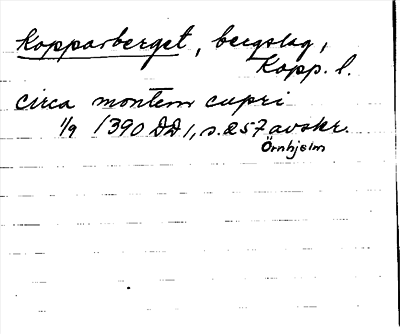 Kopparberget, bergslag,
Kopp. l.
circa montem cupri
1/9 1390 DD 1, s. 257 avskr.
Örnhjelm